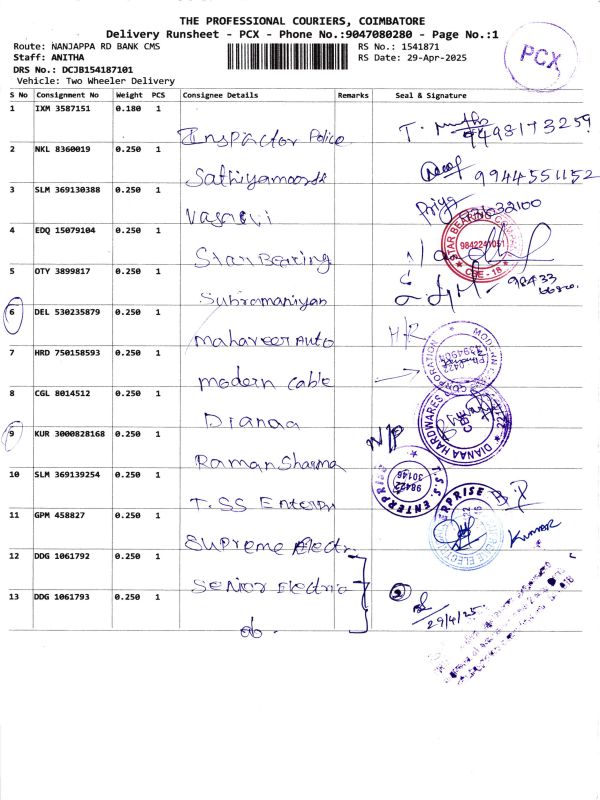 THE PROFESSIONAL COURIERS, COIMBATORE
Delivery Runsheet - PCX - Phone No.:9047080280 - Page No.:1
Route: NANJAPPA RD BANK CMS
RS No.: 1541871
Staff: ANITHA
RS Date: 29-Apr-2025
DRS No.: DCJB154187101
Vehicle: Two Wheeler Delivery
PCX
S No Consignment No Weight PCS Consignee Details Remarks Seal & Signature
1 IXM 3587151 0.180 1
Inspector Police
2 NKL 8360019 0.250 1
9944551152
3 SLM 369130388 0.250 1
Priya
4 EDQ 15079104 0.250 1
Star Bearing
STAR BEARING
9842241051
CBE - 18
5 OTY 3899817 0.250 1
Subramaniyan
6 DEL 530235879 0.250 1
Mahaveer Auto
7 HRD 750158593 0.250 1
modern cable
CORPORATION
8 CGL 8014512 0.250 1
Dianaa
DIANAA HARDWARES
9 KUR 3000828168 0.250 1
Raman Sharma
10 SLM 369139254 0.250 1
T.SS Enterpri
T.S.S. ENTERPRISE
98422
30146
11 GPM 458827 0.250 1
Supreme Electri
Kumar
12 DDG 1061792 0.250 1
Senior Electric
13 DDG 1061793 0.250 1
do
2
29/4/25